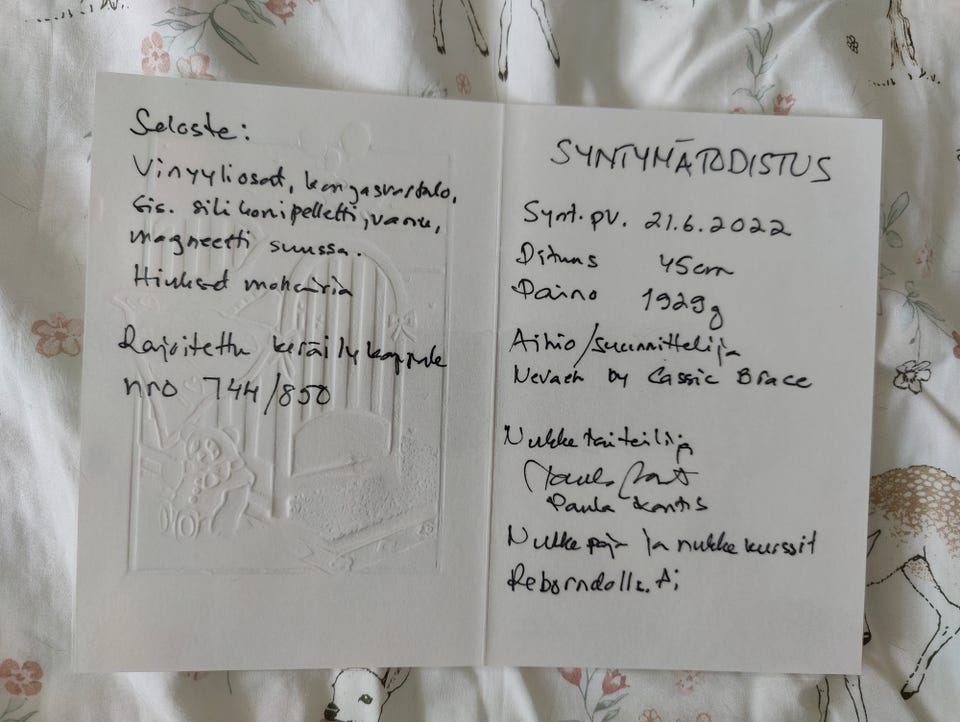 Seloste:
Vinyyliosat, kangasvartalo,
sis. silikonipelletti, vanu,
magneetti suussa.
Hiukset mohairia
Rajoitettu keräilykappale
nro 744/850
SYNTYMÄTODISTUS
Synt.pv. 21.6.2022
Pituus 45cm
Paino 1929g
Aihio/suunnittelija
Nevaeh by Cassie Brace
Nukketaiteilija
Paula
Nukkepaja ja nukkekurssit
Reborndolls.fi